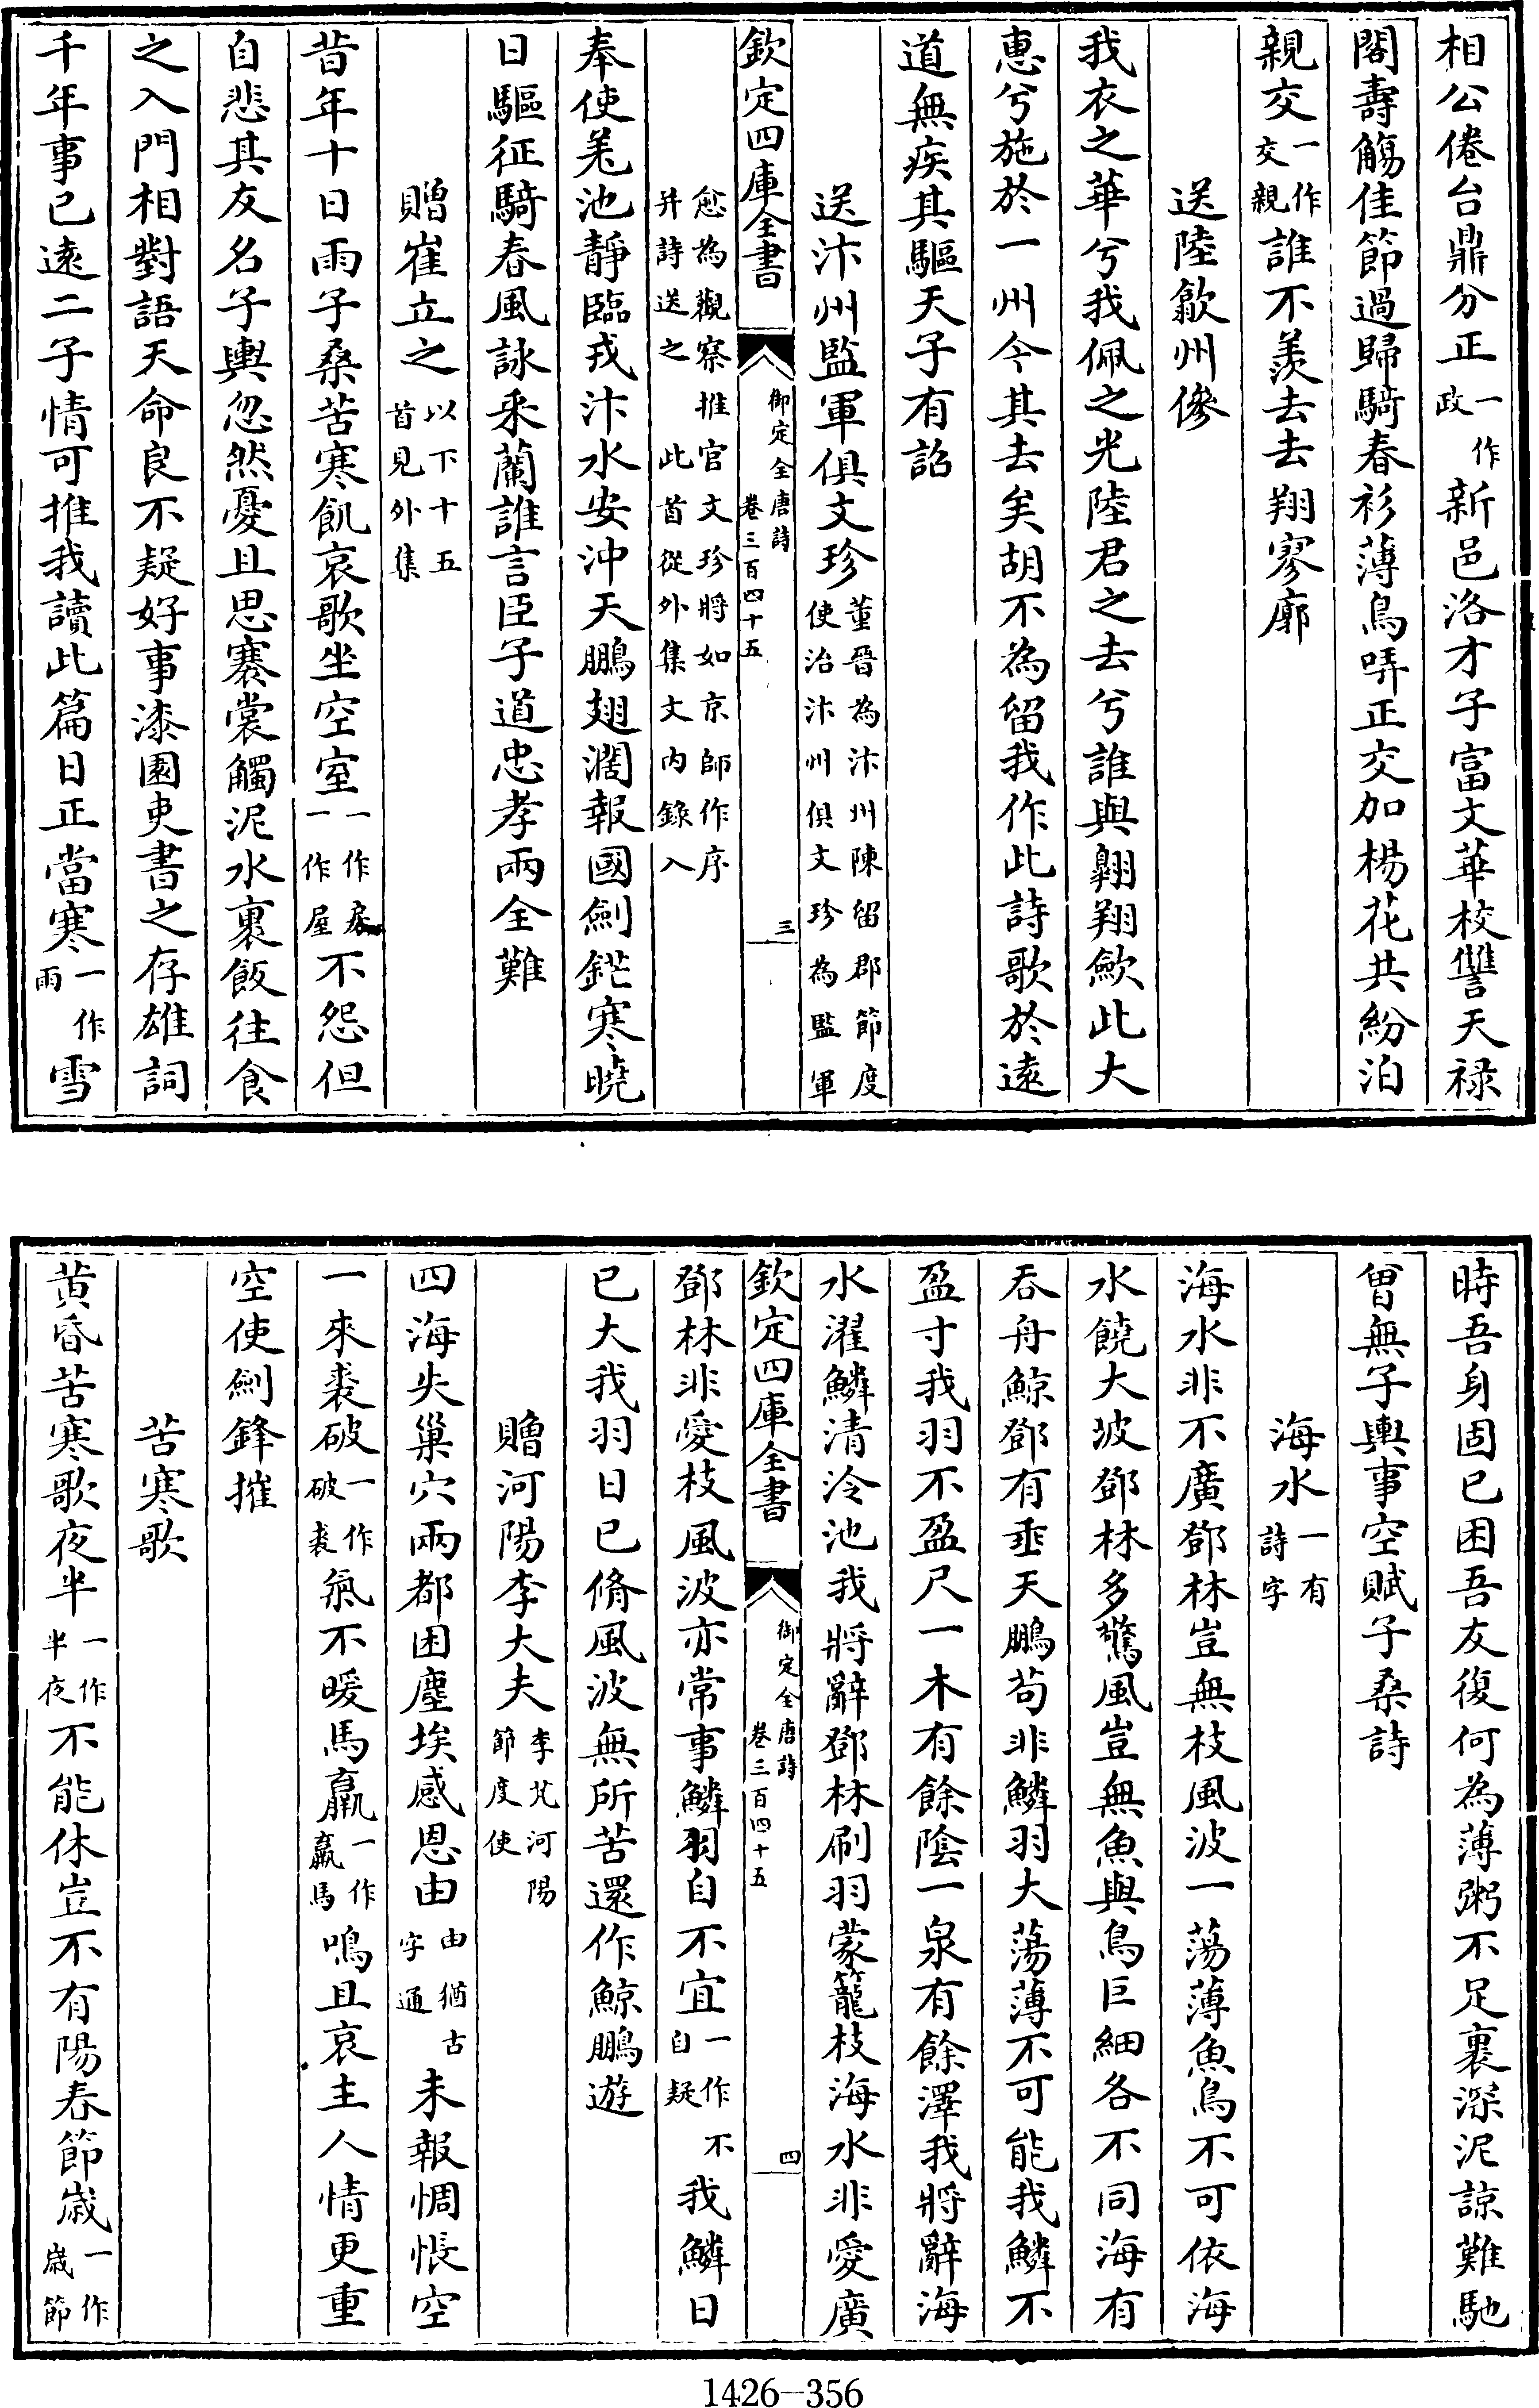 相公倦台鼎分正一作政新邑洛才子富文華校讐天祿
閣壽觴佳節過歸騎春衫薄鳥哢正交加楊花共紛泊
親交一作交親誰不羨去去翔寥廓
送陸歙州傪
我衣之華兮我佩之光陸君之去兮誰與翺翔歛此大
惠兮施於一州今其去矣胡不為留我作此詩歌於逵
道無疾其驅天子有詔
送汴州監軍俱文珍董晉為汴州陳留郡節度使治汴州俱文珍為監軍
欽定四庫全書 御定全唐詩卷三百四十五 三
愈為觀察推官文珍將如京師作序并詩送之此首從外集文內錄入
奉使羌池靜臨戎汴水安沖天鵬翅濶報國劍鋩寒曉
日驅征騎春風詠采蘭誰言臣子道忠孝兩全難
贈崔立之以下十五首見外集
昔年十日雨子桑苦寒飢哀歌坐空室一作房一作屋不怨但
自悲其友名子輿忽然憂且思褰裳觸泥水裹飯往食
之入門相對語天命良不疑好事漆園吏書之存雄詞
千年事已遠二子情可推我讀此篇日正當寒一作雨雪
時吾身固已困吾友復何為薄粥不足裹深泥諒難馳
曾無子輿事空賦子桑詩
海水一有詩字
海水非不廣鄧林豈無枝風波一蕩薄魚鳥不可依海
水饒大波鄧林多驚風豈無魚與鳥巨細各不同海有
吞舟鯨鄧有垂天鵬苟非鱗羽大蕩薄不可能我鱗不
盈寸我羽不盈尺一木有餘陰一泉有餘澤我將辭海
水濯鱗清泠池我將辭鄧林刷羽蒙籠枝海水非愛廣
欽定四庫全書 御定全唐詩卷三百四十五 四
鄧林非愛枝風波亦常事鱗羽自不宜一作不自疑我鱗日
已大我羽日已脩風波無所苦還作鯨鵬遊
贈河陽李大夫李芃河陽節度使
四海失巢穴兩都困塵埃感恩由由猶古字通未報惆悵空
一來裘破一作破裘氣不暖馬羸一作羸馬鳴且哀主人情更重
空使劍鋒摧
苦寒歌
黃昏苦寒歌夜半一作半夜不能休豈不有陽春節歲一作歲節
1426-356